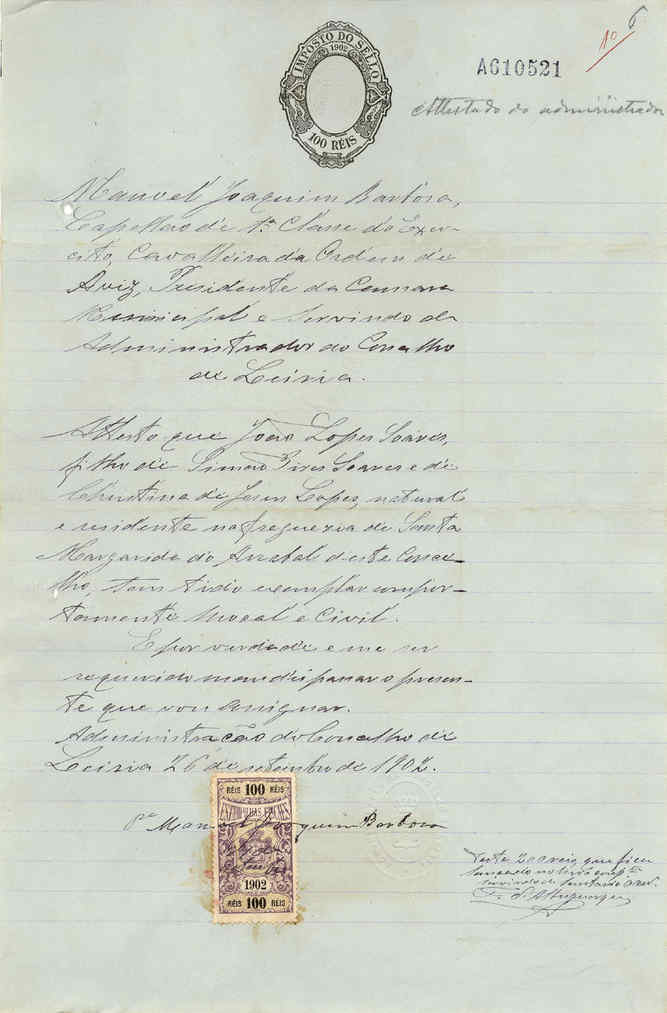 6
10
IMPOSTO DO SELLO
1902
100 RÉIS
A610521
Attestado do administrador
Manuel Joaquim Barbosa,
Capellão de 1ª Classe do Exer-
cito, Cavalleiro da Ordem de
Aviz, Presidente da Camara
Municipal e servindo de
Administrador do Concelho
de Leiria.
Attesto que João Lopes Soares,
filho de Simão Pires Soares e de
Christina de Jesus Lopes, natural
e residente na freguezia de Santa
Margarida do Arrabal d'este Conce-
lho, tem tido exemplar compor-
tamento Moral e Civil.
E por verdade e me ser
requerido mandei passar o presen-
te que vou assignar.
Administração do Concelho de
Leiria 26 de setembro de 1902.
RÉIS 100 RÉIS
Manuel Joaquim Barbosa
1902
RÉIS 100 RÉIS
Desta 200 reis, que fica
lançado no livro